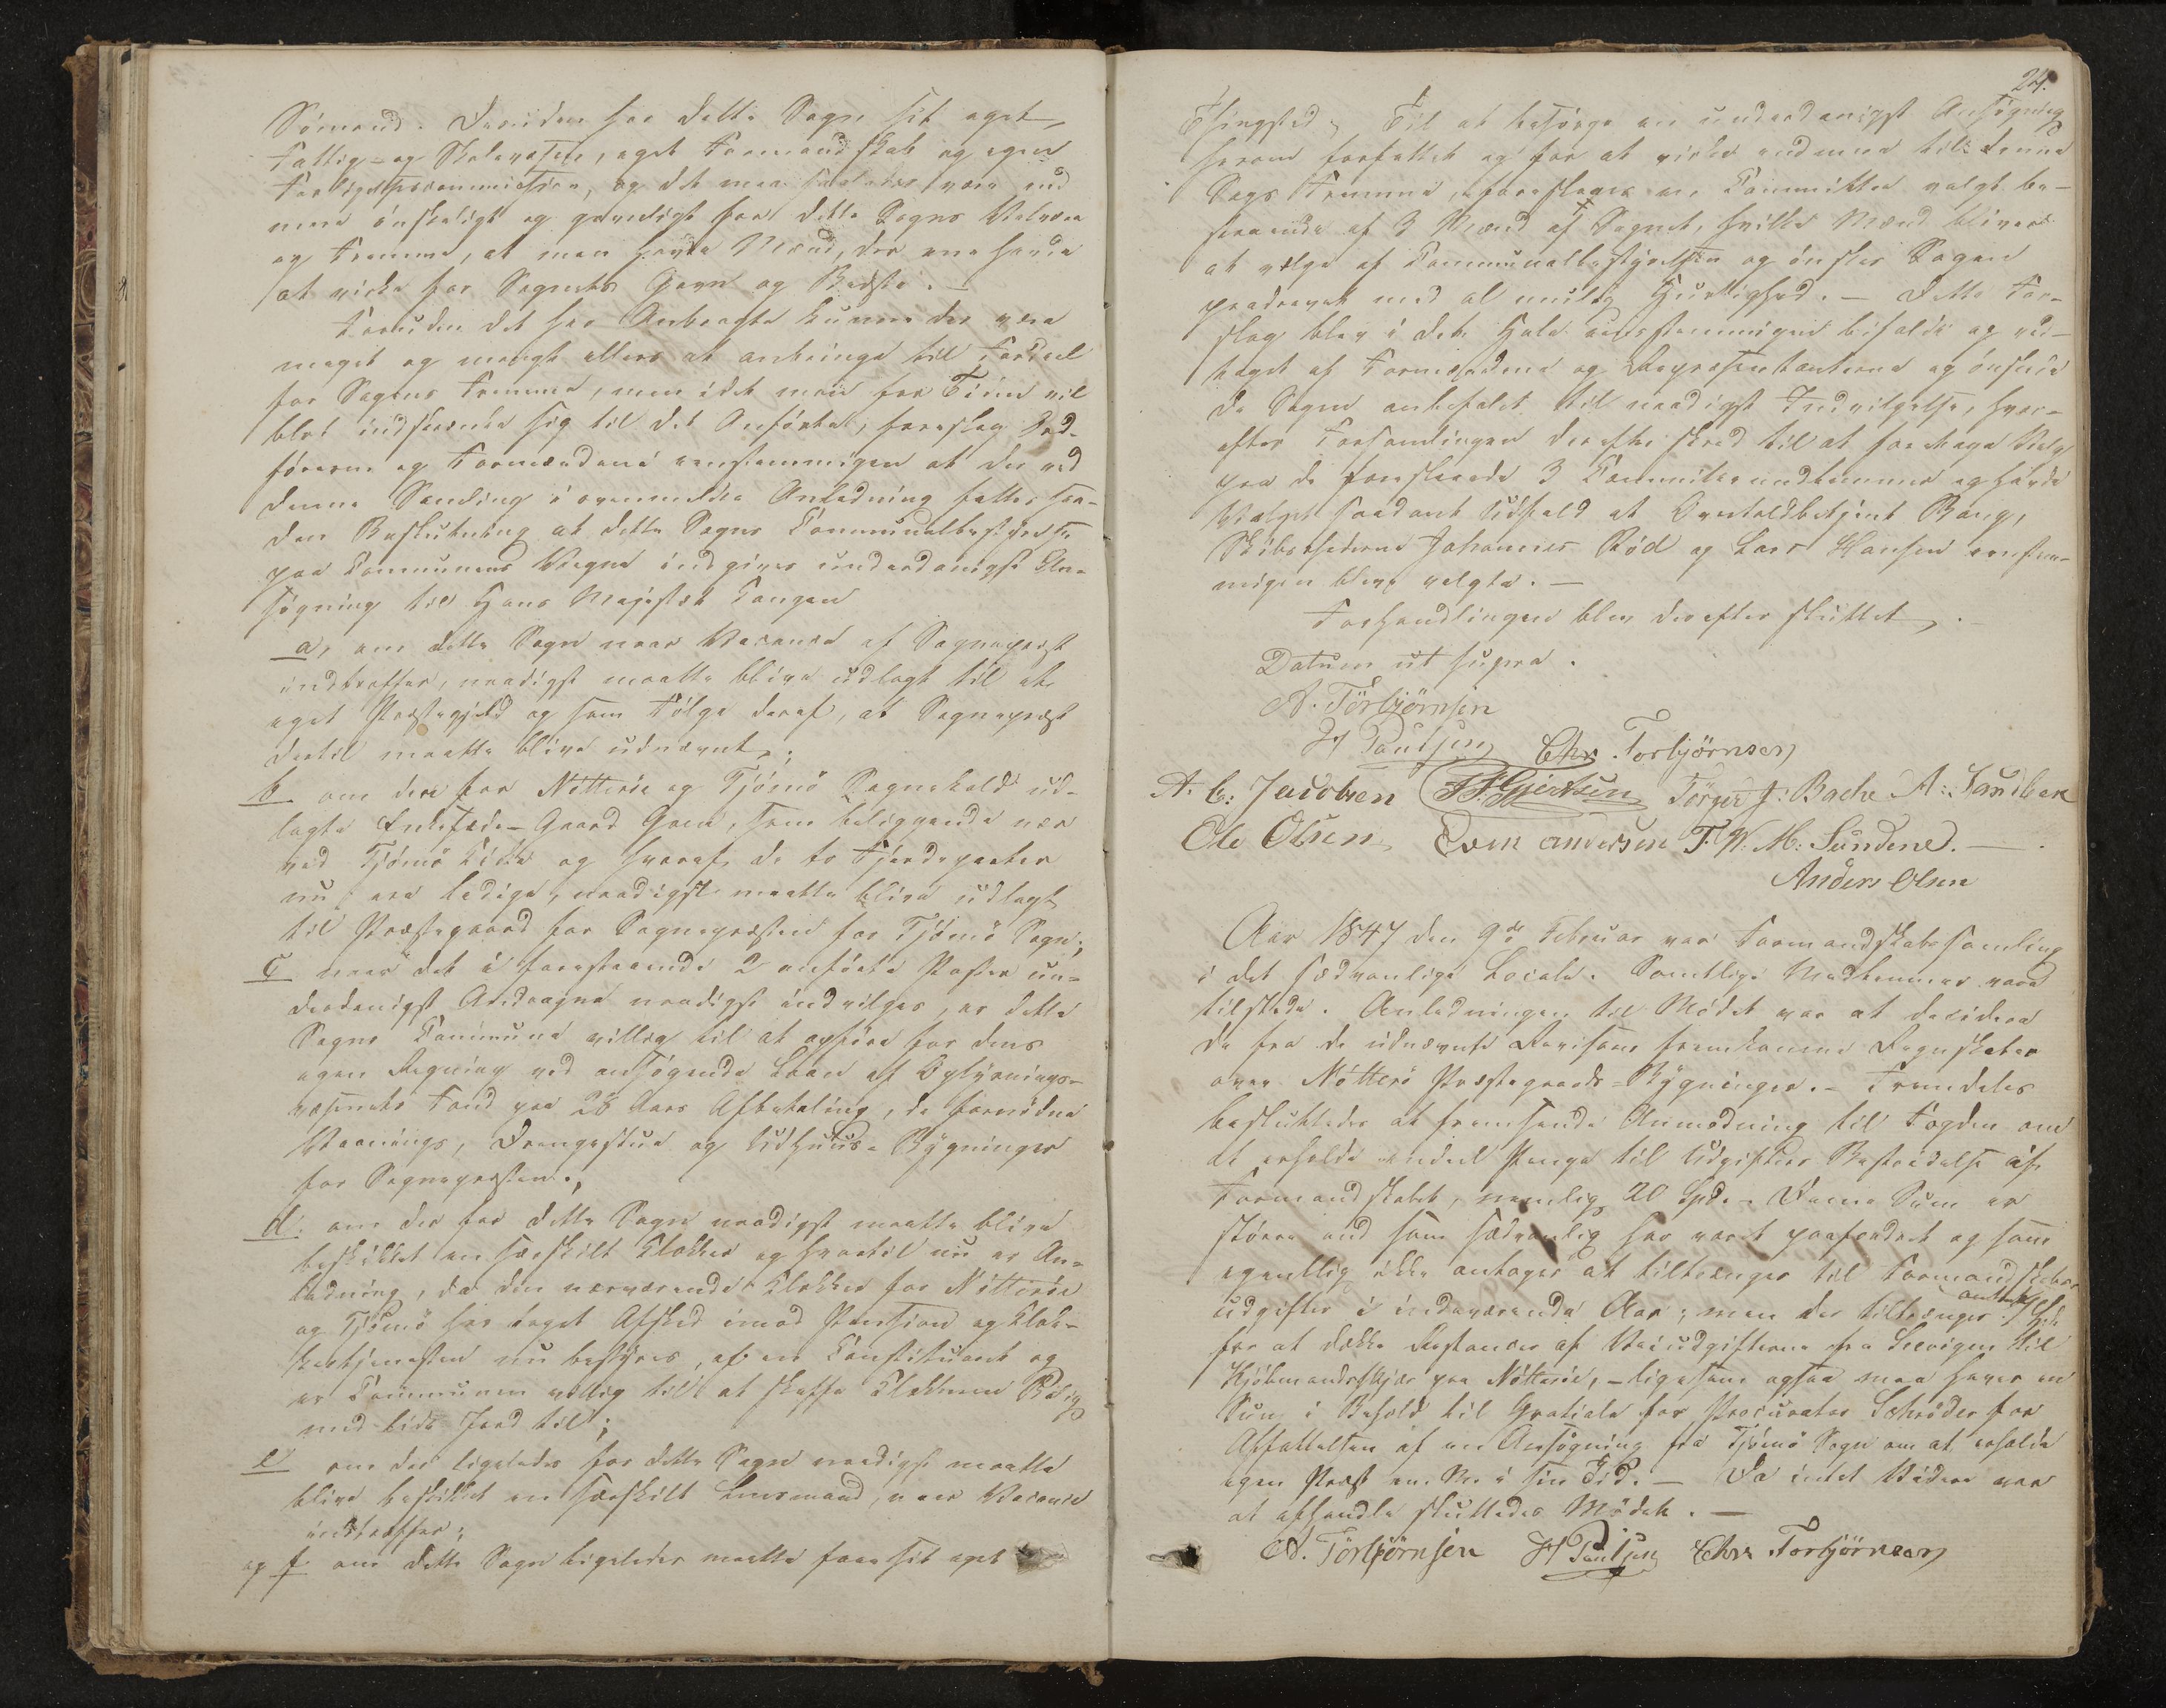 Sömænd. Desuden har dette Sogn sit eget
Fattig- og Skolevæsen, eget Formandskab og egen
Forligelsescommission, og det maa saaledes være end
mere önskeligt og gavnligt for dette Sogns Velvære
og Fremme, at man havde Mænd, der ene havde
at virke for Sognets Gavn og Bedste. –
Foruden det her Anbragte kunne der være
meget og mangt ellers at anbringe til Fordeel
for Sagens Fremme, men idet man for Tiden vil
blot indskrænke sig til det Anförte, foreslog Ord-
föreren og Formændene eenstemmigen at der ved
denne Samling i ovenmeldte Anledning fattes saa-
dan Beslutning at dette Sogns Communalbestyrelse
paa Communens Vegne indgiver underdanigst An-
sögning til Hans Majestæt Kongen
a, om dette Sogn naar Vacance af Sognepræst
indtreffer, naadigst maatte blive udlagt til et
eget Præstegjeld og som Fölge deraf, at Sognepræst
dertil maatte blive udnævnt;
b om den for Nötteröe og Tjömö Sognekald ud-
lagte Enkesæde-Gaard Grein, som beliggende nær
ved Tjömö Kirke og hvoraf de to Fjerdeparter
nu ere ledige, naadigst maatte blive udlagt
til Præstegaard for Sognepræsten for Tjömö Sogn;
c naar det i forestaaende 2 anförte Poster un-
derdanigst Andragne naadigst indvilges, er dette
Sogns Commune villig til at opföre for dens
egen Regning ved ansögende Laan af Oplysnings-
væsenets Fond paa 28 Aars Afbetaling, de fornödne
Vaanings, Drengestue og Udhuus-Bygninger
for Sognepræsten;
d. om der for dette Sogn naadigst maatte blive
beskikket en særskilt Klokker og hvortil nu er An-
ledning, da den nærværende Klokker for Nötteröe
og Tjömö har taget Afsked imod Pension og Klok-
kertjenesten nu bestyres af en Constitueret og
er Communen villig til at skaffe Klokkeren Bolig
med lidt Jord til;
e om der ligeledes for dette Sogn naadigst maatte
blive beskikket en særskilt Lensmand, naar Vacance
indtreffer;
og f om dette Sogn ligeledes maatte faae sit eget
24.
Thingsted. Til at besörge en underdanigst Ansögning
herom forfattet og for at virke endmere til denne
Sags Fremme, foreslaaes en Committee valgt be-
staaende af 3 Mænd af Sognet, hvilke Mænd bliver
at vælge af Communalbestyrelsen og önskes Sagen
paadrevet med al mulig Hurtighed. – Dette For-
slag blev i det Hele eenstemmigen bifaldt og ved-
taget af Formændene og Repræsentanterne og önskede
de Sagen anbefalet til naadigst Indvilgelse, hvor-
efter Forsamlingen derefter skred til at foretage Valg
paa de foreslaaede 3 Committeemedlemmer og havde
Valget saadant Udfald at Overtoldbetjent Bang,
Skibsrhederne Johannes Röd og Lars Hansen eenstem-
migen bleve valgte. –
Forhandlingen blev derefter sluttet.
Datum ut supra.
A. Törbjörnsen
H Paulsen Chr. Torbjörnsen
A. C. Jacobsen Törger J: Bache A: Sandbek
Ole Olsen Even Andersen T. W. M: Sundene. –
Anders Olsen
Aar 1847 den 9de Februar var Formandskabssamling
i det sædvanlige Locale. Samtlige Medlemmer vare
tilstede. Anledningen til Mödet var at decidere
de fra de udnævnte Revisorer fremkomne Regnskaber
over Nötterö Præstegaards-Bygninger. – Fremdeles
besluttedes at fremsende Anmodning til Fogden om
at erholde endeel Penge til Udgifters Bestridelse af
Formandskabet, nemlig 20 Spd. – Denne Sum er
större end som sædvanlig har været paafordret og som
egentlig ikke antages at tiltrænges til Formandskabets
udgifter i indeværende Aar; men der tiltrænges
for at dække Restancer af Veiudgifterne fra Tjömö til
Kjöbmandskjær paa Nötteröe, – ligesom ogsaa maa haves en
Sum i Behold til Gratiale for Procurator Schröder for
Affattelsen af en Ansögning fra Tjömö Sogn om at erholde
egen Præst m. M. i sin Tid. – Da intet Videre var
at afhandle sluttedes Mödet. –
A. Törbjörnsen H Paulsen Chr. Torbjörnsen